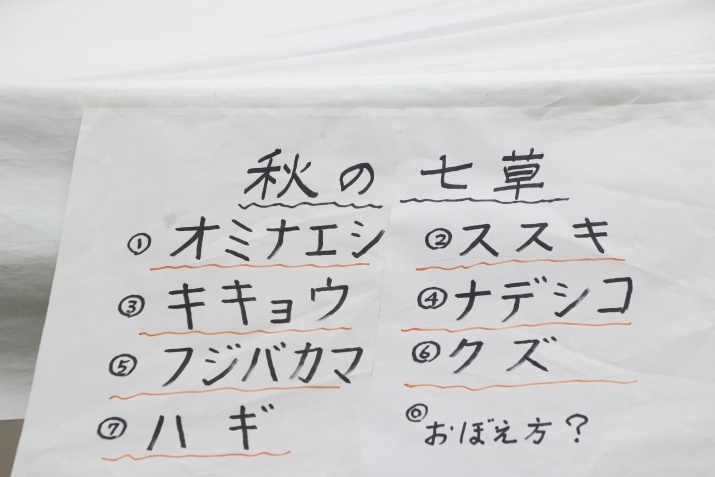 秋の七草
①オミナエシ ②ススキ
③キキョウ ④ナデシコ
⑤フジバカマ ⑥クズ
⑦ハギ ◎おぼえ方？